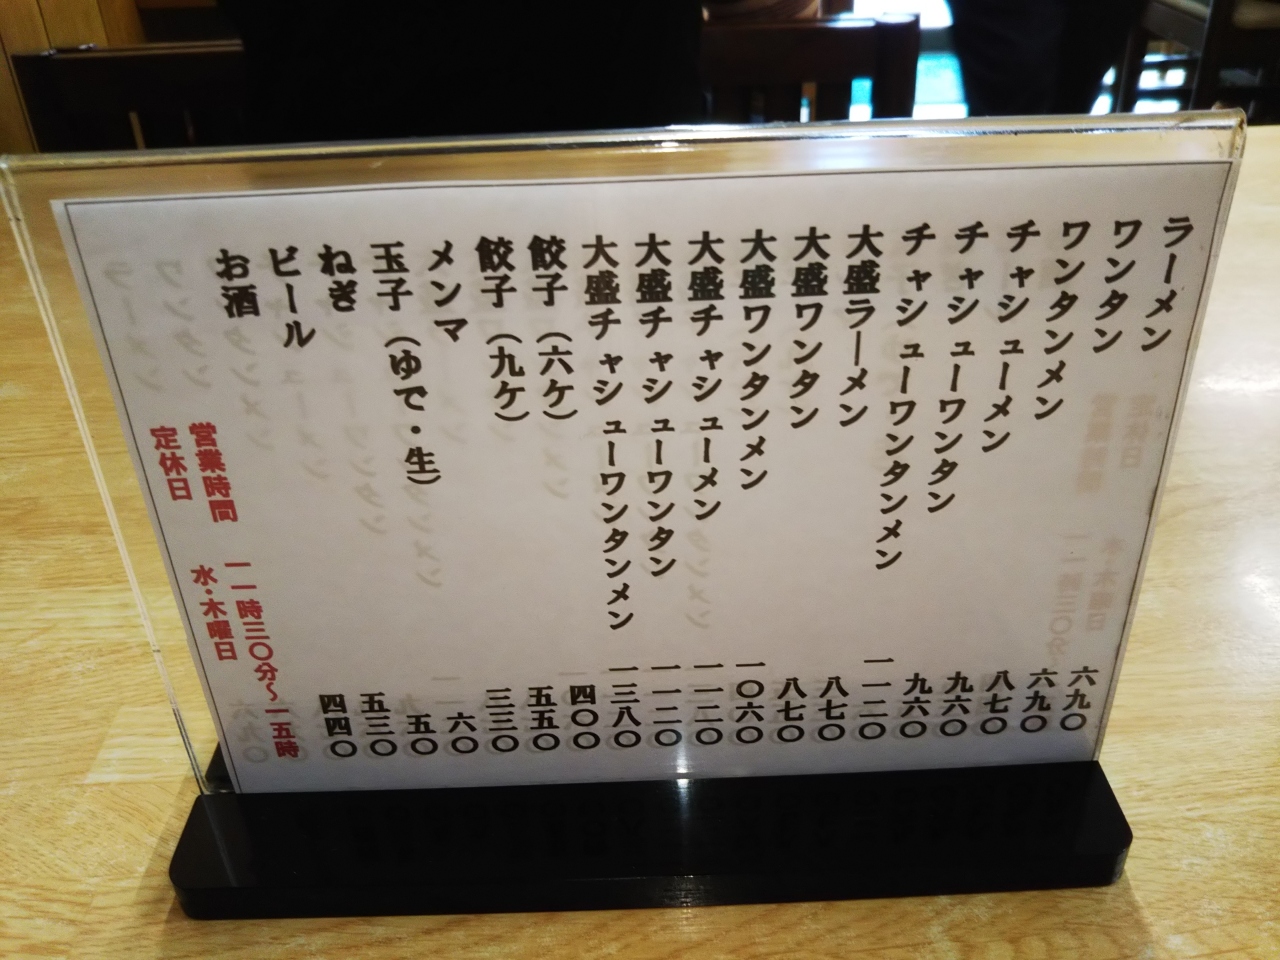 ラーメン 六九〇
ワンタン 六九〇
ワンタンメン 八七〇
チャシューメン 九六〇
チャシューワンタン 九六〇
チャシューワンタンメン 一一二〇
大盛ラーメン 八七〇
大盛ワンタン 八七〇
大盛ワンタンメン 一〇六〇
大盛チャシューメン 一一二〇
大盛チャシューワンタン 一一二〇
大盛チャシューワンタンメン 一三八〇
餃子(六ケ) 四〇〇
餃子(九ケ) 五五〇
メンマ 三三〇
玉子(ゆで・生) 六〇
ねぎ 五〇
ビール 五三〇
お酒 四四〇
営業時間 一一時三〇分～一五時
定休日 水・木曜日